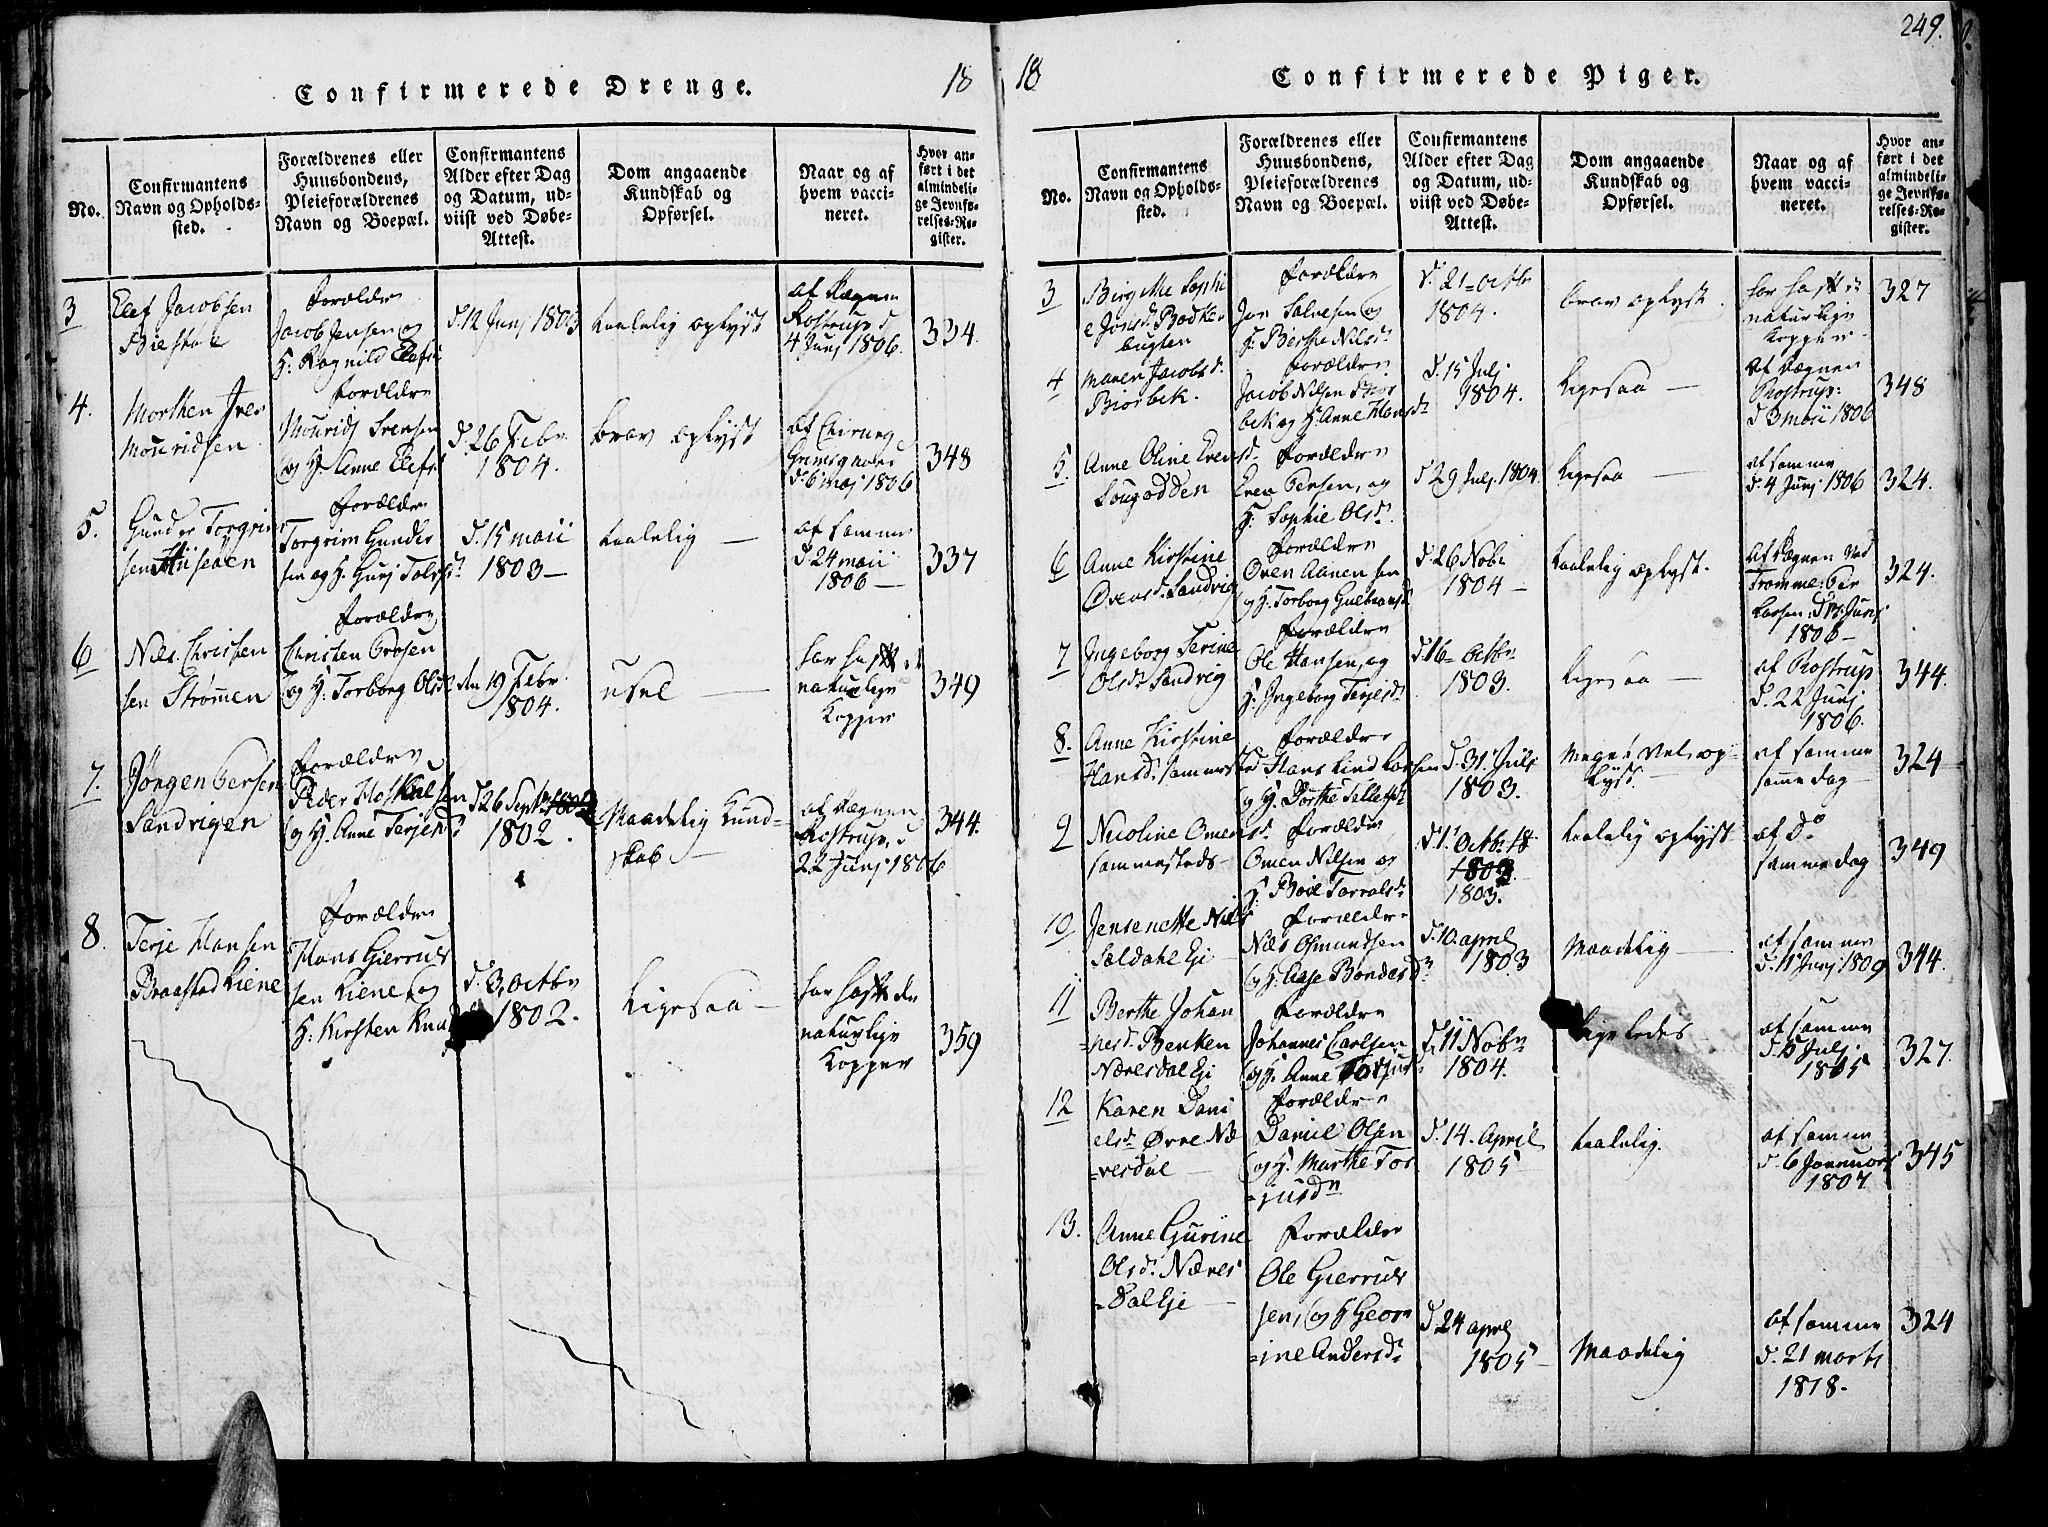 249.
Confirmerede Drenge.
18
No.
Confirmantens
Navn og Opholds-
sted.
Forældrenes eller
Huusbondens,
Pleieforældrenes
Navn og Boepæl.
Confirmantens
Alder efter Dag
og Datum, ud-
viist ved Døbe-
Attest.
Dom angaaende
Kundskab og
Opførsel.
Naar og af
hvem vacci-
neret.
Hvor an-
ført i det
almindeli-
ge Jevnfø-
relses-Re-
gister.
3
Elef Jacobsen
forældre
Jacob Jensen og
H: Ragnild Elefsd
d. 12 Junj 1803
taalelig oplyst
af Degnen
Rostrup d
4 Junj 1806.
334.
4.
Morthen Iver
Mouridsen
forældre
Mourids Ivensen
og H: Anne Elefsd
d. 26 Febr.
1804.
brav oplyst
af Chirurg
d. 6 maj 1806
348
5.
Gunder Torgrim
sen
forældre
Torgrim Gunder
sen og H. Gurj
d. 15 maii
1803 —
taalelig —
af samme
d. 24 maii
1806 —
337
6
Nils Christen
sen Strømmen
forældre
Christen Orøsen
og H. Torborg Olsd
den 19 Febr.
1804.
usel —
har haft de
naturlige
Kopper
349
7.
Jørgen Persen
Sandvigen
forældre
Peder
og H. Anne Terjesd
d. 26 Sept. 1802
1802.
Maadelig Kund=
skab —
af Degnen
Rostrup, d
22 Junj 1806
344.
8.
Terje Hansen
Braastad Kiene
forældre
Hans Gierruls
sen Kiene og
H: Kirsten Knud
d. 3, Octbr
1802.
Ligesaa —
har haft de
naturlige
Kopper
359
18
Confirmerede Piger.
No.
Confirmantens
Navn og Opholds-
sted.
Forældrenes eller
Huusbondens,
Pleieforældrenes
Navn og Boepæl.
Confirmantens
Alder efter Dag
og Datum, ud-
viist ved Døbe-
Attest.
Dom angaaende
Kundskab og
Opførsel.
Naar og af
hvem vacci-
neret.
Hvor an-
ført i det
almindeli-
ge Jevnfø-
relses-Re-
gister.
3
Birgitte Sophi
e Jonsd. Bodke
bugten
forældre
Jon Salvesen og
H: Berthe Nilsd.
d. 21 = Octbr
1804.
brav oplyst.
har haft de
naturlige
Kopper
327
4
Maren Jacobsd.
Biorbek.
forældre
Jacob Nilsen Bior
bek og H: Anne Hansd.
d. 15 Julj
1804.
Ligesaa —
af Degnen
Rostrup:
d 3 maii 1806
348
5.
Anne Oline Evensd.
Songodden
forældre
Even Persen, og
H: Sophie Olsd.
d 29 Julj 1804.
Ligesaa —
af samme
d. 4 Junj 1806
324.
6
Anne Kirstine
Ovensd. Sandvig
forældre
Oven Aanen sen
og H: Torborg Gulbransd
d. 26 Nobr
1804 —
taalelig oplyst.
af Degnen ved
Tromme: Per
Larsen: Junj
1806 —
324.
7
Ingeborg Terine
Olsd. Sandvig
forældre
Ole Hansen, og
H: Ingeborg Terjesd.
d. 16 = Octbr
1803.
Ligesaa —
af Rostrup
d. 22 Junj
1806.
344.
8.
Anne Kirstine
Hansd. Sammersted
forældre
Hans Lind Larsen
og H. Dorthe Tellefsd
d. 31 Julj
1803.
Meget vel op=
lyst. —
af samme
samme dag
324
9
Nicoline Omensd.
Sammersteds —
forældre
Omen Nilsen og
H: Boel Torvalsd.
d. 1 Octbr 18
1803
1803.
taalelig oplyst
af do
samme dag
349
10
Jensenette Nils
Søldahl Eje
forældre
Nils Osmundsen
og H. Aase Bondesd.
d. 10. april
1803
Maadelig —
af samme
d. 11 Junj 1809
344.
11
Berthe Johan
=nesd. Benken
Næresdal Eje
forældre
Johannes Carlsen
og H. Anne
d. 11 Nobr
1804.
Ligeledes
af samme
d. 15 Julj
1805
327.
12
Karen Dani
elsd. Øvre Næ
=resdal —
forældre
Daniel Olsen
og H. Marthe Tor
=jusdn
d. 14. April
1805
taalelig.
af samme
d. 6 Januari
1807
345
13.
Anne Gurine
Olsd. Næres
=dal Eje —
forældre
Ole Gierruls
sen, og H Geor
=ine Andersd.
d. 24 april
1805 —
Maadelig
af samme
d. 21 marts
1818.
324